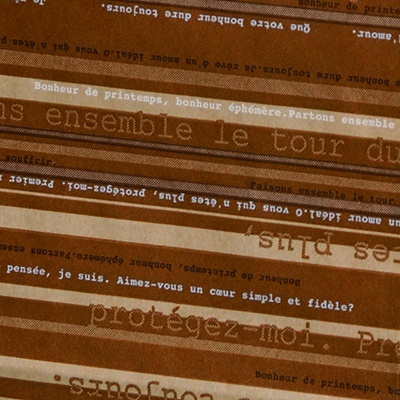 Bonheur de printe
toujours.
Que votre bonheur dure toujours.
amour.
bonheur dure toujours.Je rêve d'un amour idéal.O vous qui n'êtes
Bonheur de printemps, bonheur éphémère.Partons ensemble
ns ensemble le tour du
souffrir.
Faisons ensemble le tour
un amour idéal.O vous qui n'êtes plus, protégez-moi. Premier
res plus,
Bonheur de printemps, bonheur éphémère.Partons ensem
pensée, je suis. Aimez-vous un cœur simple et fidèle?
protégez-moi. Pre
Bonheur de printemps, bo
toujours.